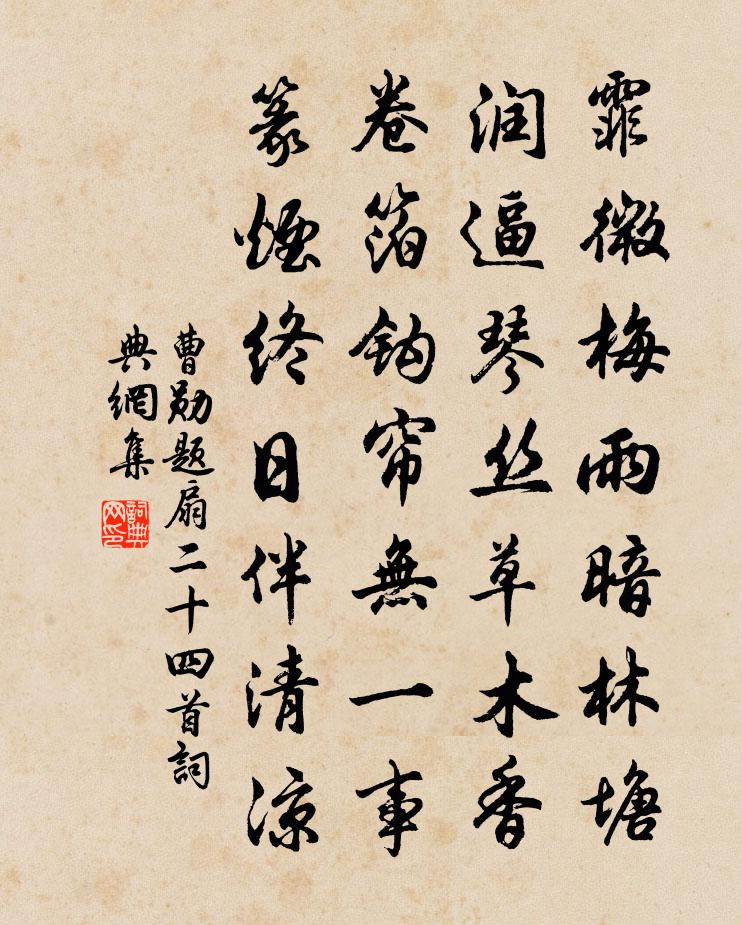 霏微梅雨暗林塘
润逼琴丝草木香
卷箔钩帘無一事
篆煙终日伴清凉
曹勋题扇二十四首詞
典網集
詞典網印